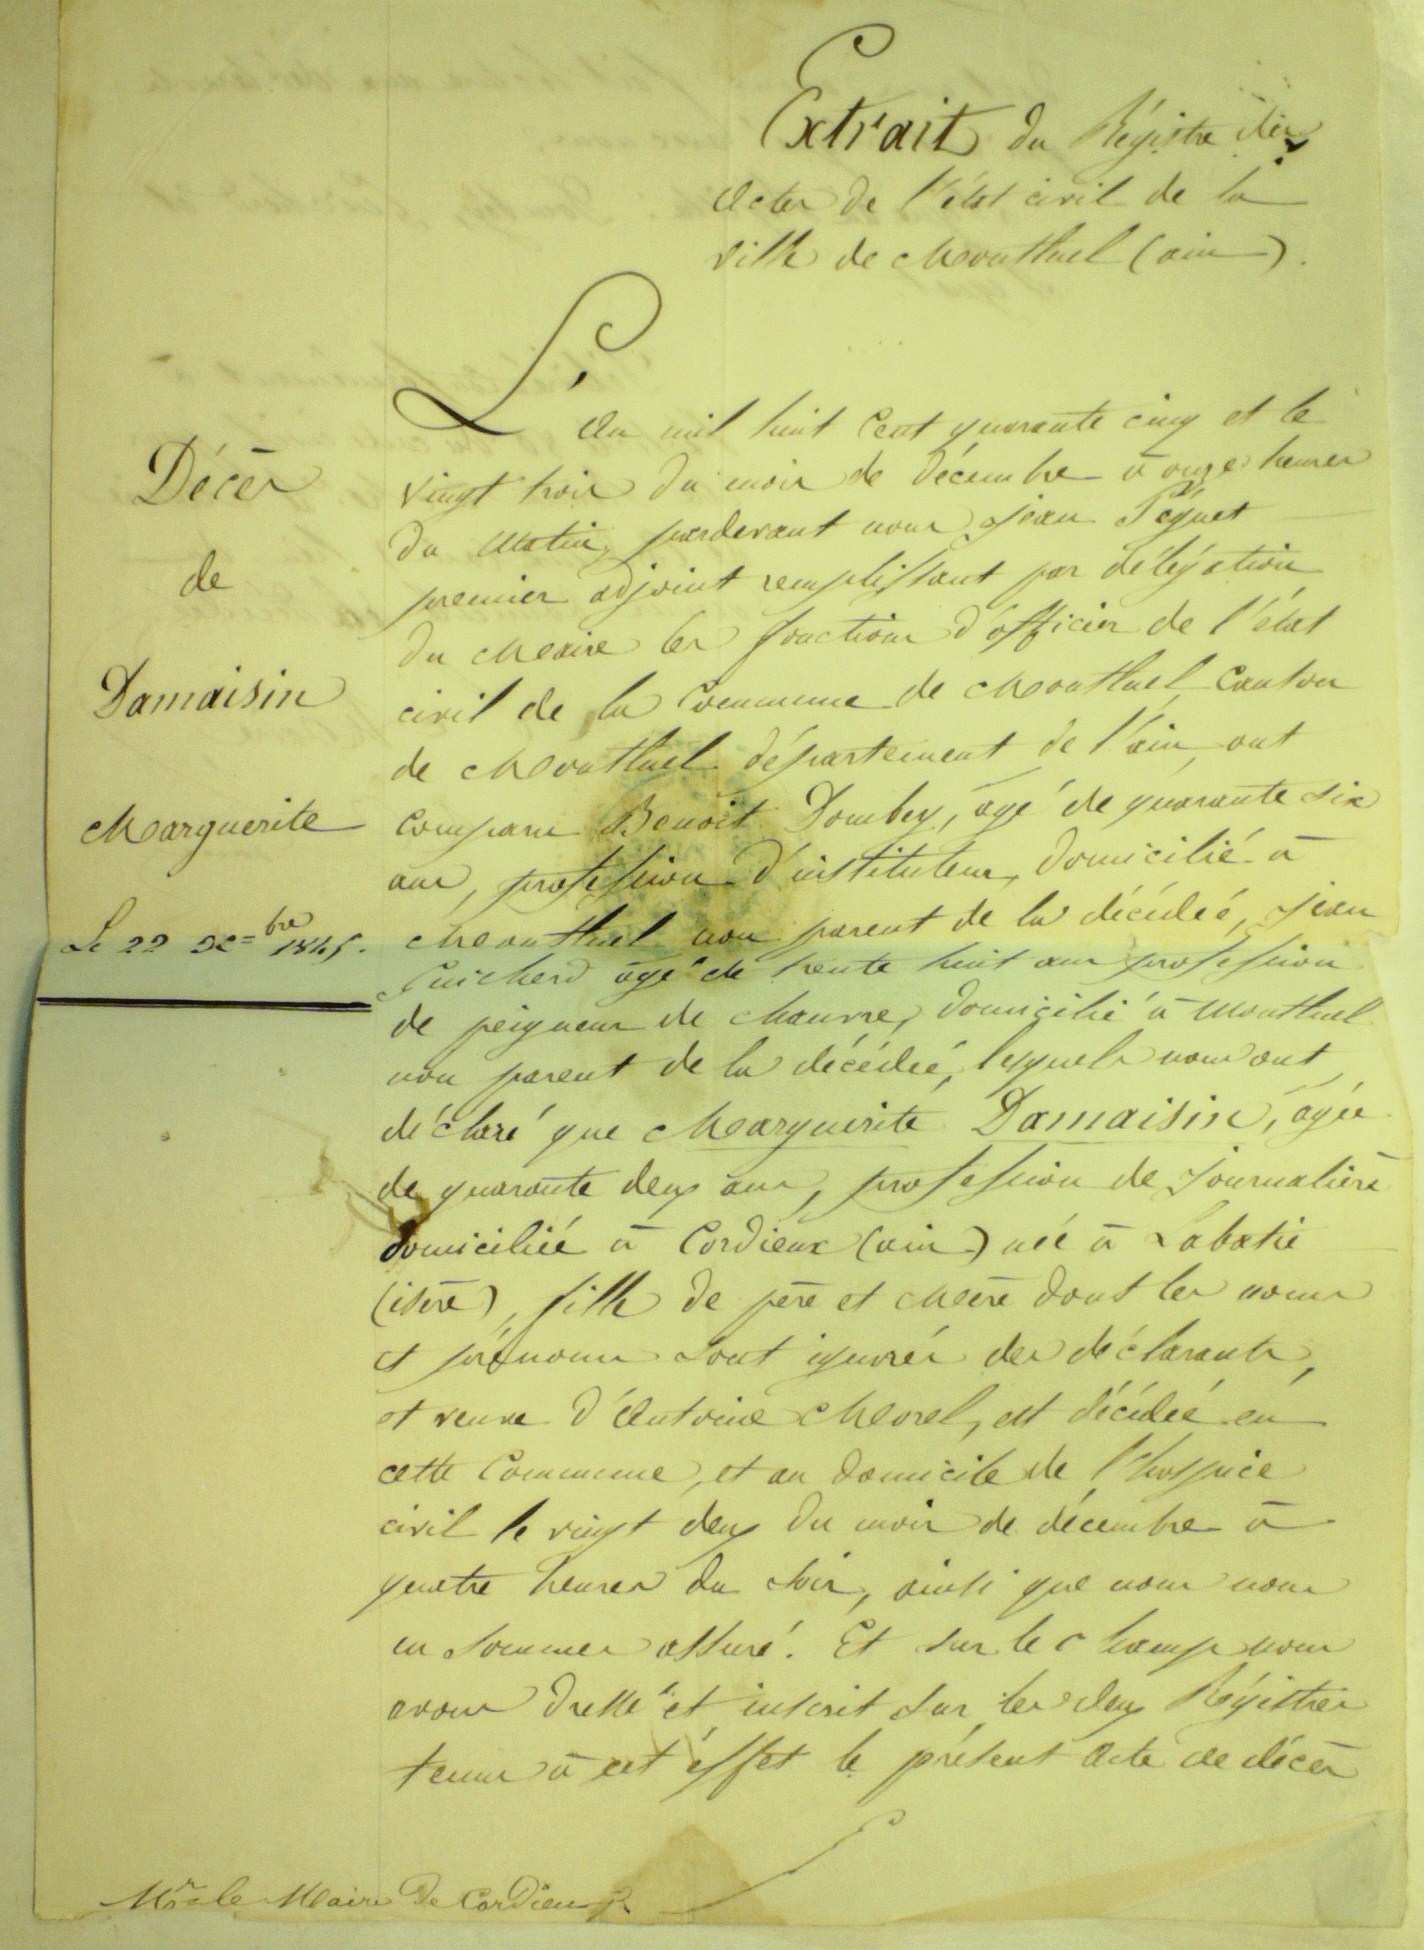 Extrait du Régistre des
Actes de l'état civil de la
ville de Montluel (ain).
L'An mil huit Cent quarante cinq et le
vingt trois du mois de décembre à onze heures
du Matin, pardevant nous Jean Péquet
premier adjoint remplissant par délégation
du Maire les fonctions d'officier de l'état
civil de la Commune de Montluel Canton
de Montluel département de l'ain, ont
comparu Benoit Dombey, agé de quarante six
ans, profession d'instituteur, domicilié à
Montluel non parent de la décédée, Jean
Guichard agé de trente huit ans profession
de peigneur de chanvre, domicilié à Montluel
non parent de la décédée, lesquels nous ont
déclaré que Marguerite Damaisin, agée
de quarante deux ans, profession de journalière
domiciliée à Cordieux (ain) née à Labatie
(isère), fille de père et mère dont les noms
et prénoms sont ignorés des déclarants,
et veuve d'Antoine Morel, est décédée en
cette Commune, et au domicile de l'hospice
civil le vingt deux du mois de décembre à
quatre heures du soir, ainsi que nous nous
en sommes assuré. Et sur le champ nous
avons dressé et inscrit sur les deux Régistres
tenus à cet éffet le présent acte de décès
Décès
de
Damaisin
Marguerite
Le 22 Xbre 1845.
Mr le Maire de Cordieux